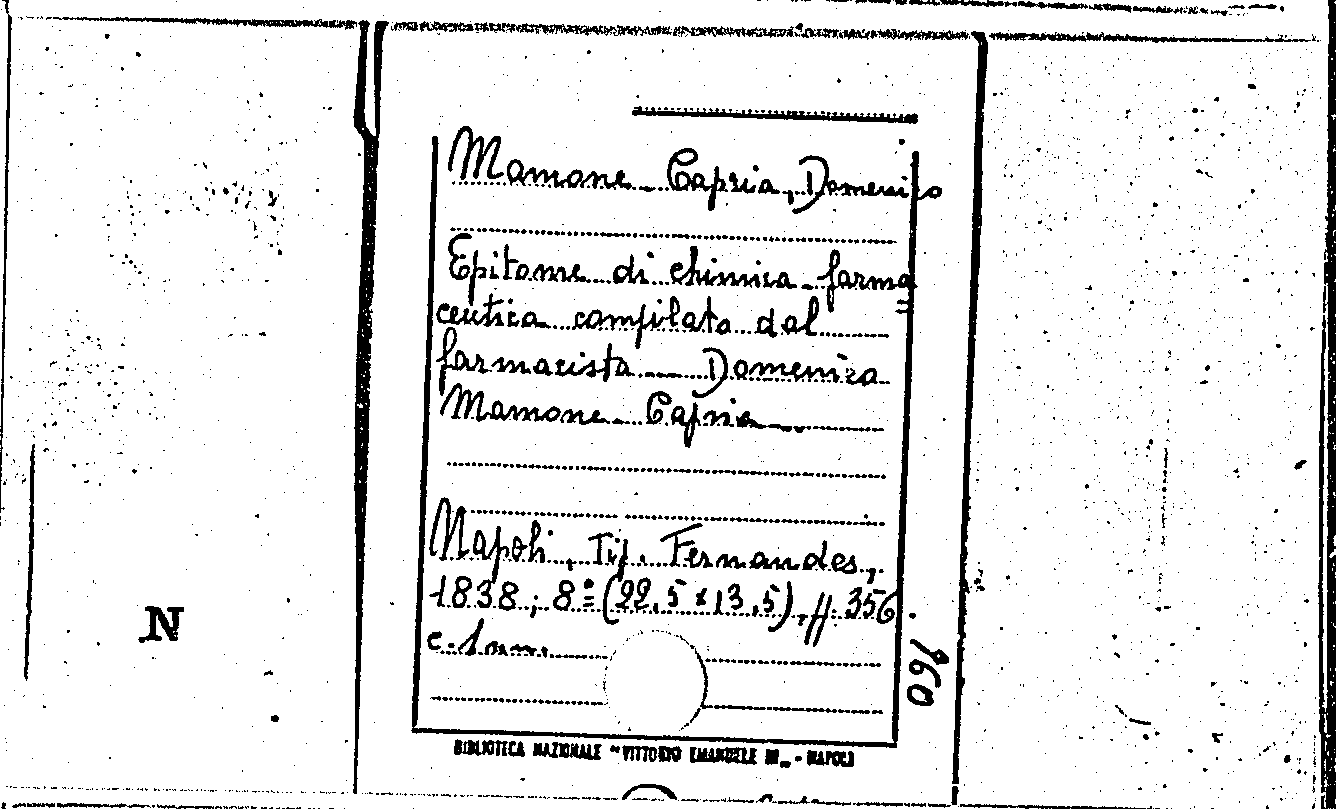 Mamone Capria, Domenico
Epitome di chimica farma=
ceutica compilata dal
farmacista Domenico
Mamone Capria
Napoli, Tip. Fernandes,
1838; 8° (22,5 x 13,5), ff. 356.
c. 1 nn.
960
N
BIBLIOTECA NAZIONALE "VITTORIO EMANUELE III" - NAPOLI